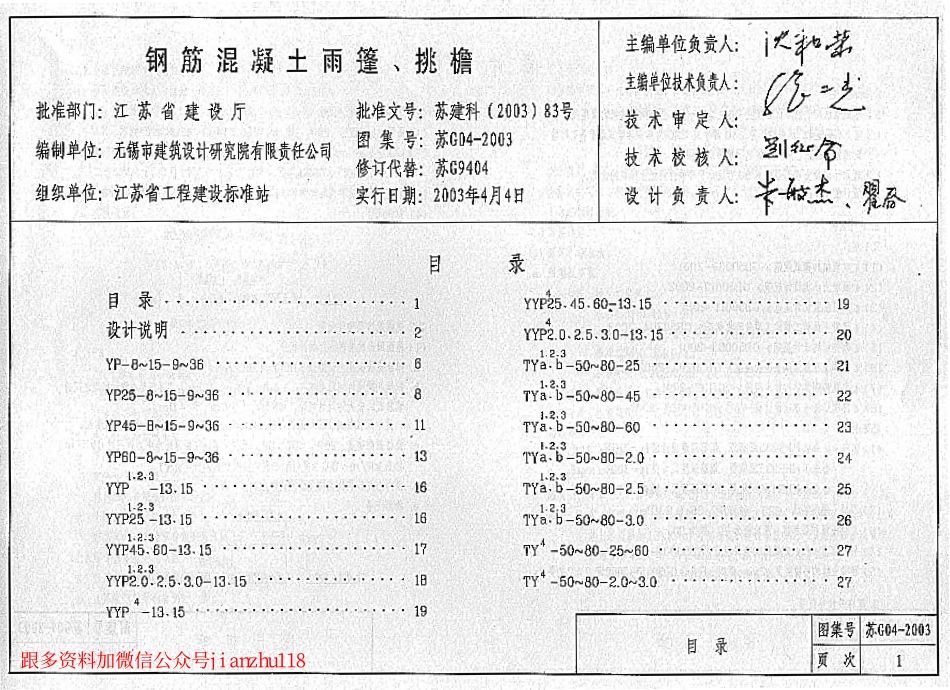 钢筋混凝土雨篷、挑檐
批准部门: 江苏省建设厅
编制单位: 无锡市建筑设计研究院有限责任公司
组织单位: 江苏省工程建设标准站
批准文号: 苏建科(2003)83号
图集号: 苏G04-2003
修订代替: 苏G9404
实行日期: 2003年4月4日
主编单位负责人:
主编单位技术负责人:
技术审定人:
技术校核人:
设计负责人:
目 录
目 录 ········ 1
设计说明 ········ 2
YP-8~15-9~36 ········ 6
YP25-8~15-9~36 ········ 8
YP45-8~15-9~36 ········ 11
YP60-8~15-9~36 ········ 13
YYP1.2.3-13.15 ········ 16
YYP1.2.325-13.15 ········ 16
YYP1.2.345.60-13.15 ········ 17
YYP1.2.32.0.2.5.3.0-13.15 ········ 18
YYP4-13.15 ········ 19
YYP425.45.60-13.15 ········ 19
YYP42.0.2.5.3.0-13.15 ········ 20
TY1.2.3a.b-50~80-25 ········ 21
TY1.2.3a.b-50~80-45 ········ 22
TY1.2.3a.b-50~80-60 ········ 23
TY1.2.3a.b-50~80-2.0 ········ 24
TY1.2.3a.b-50~80-2.5 ········ 25
TY1.2.3a.b-50~80-3.0 ········ 26
TY4-50~80-25~60 ········ 27
TY4-50~80-2.0~3.0 ········ 27
目 录
图集号 苏G04-2003
页 次 1
跟多资料加微信公众号jianzhu118